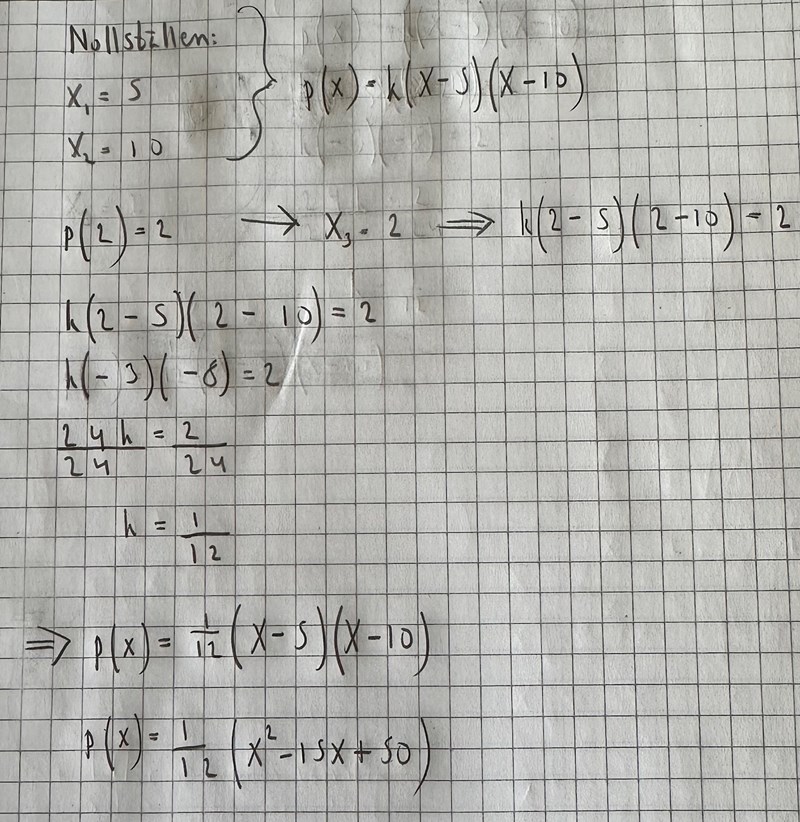 Nollställen:
x₁ = 5
x₂ = 10
p(x) = k(x-5)(x-10)
p(2) = 2 → x₃ = 2 ⇒ k(2-5)(2-10) = 2
k(2-5)(2-10) = 2
k(-3)(-8) = 2
24k/24 = 2/24
k = 1/12
⇒ p(x) = 1/12 (x-5)(x-10)
p(x) = 1/12 (x²-15x+50)